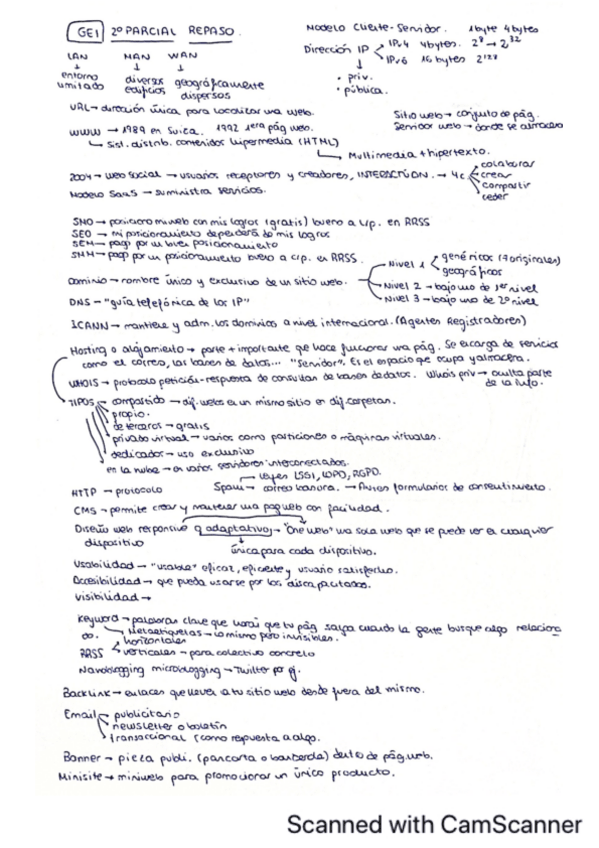 GE1 2º PARCIAL REPASO.
Modelo Cliente-Servidor. 1byte 4bytes
Dirección IP IPv4 4bytes. 2⁸ → 2³²
IPv6 16 bytes 2¹²⁸
· priv.
· pública.
LAN MAN WAN
entorno limitado
diversos edificios
geográficamente dispersos
URL → dirección única para localizar una web.
Sitio web → conjunto de pág.
Servidor web → donde se almacena
WWW → 1989 en Suiza. 1992 1era pág web.
Sist. distrib. contenidos hipermedia (HTML)
Multimedia + hipertexto.
2004 → web social → usuarios receptores y creadores, INTERACCIÓN. → 4c
colaborar
crear
compartir
ceder
Modelo SaaS → suministra servicios.
SMO → posiciono mi web con mis logros (gratis) bueno a c/p. en RRSS
SEO → mi posicionamiento dependerá de mis logros
SEM → pago por un buen posicionamiento
SMM → pago por un posicionamiento bueno a c/p. en RRSS.
Dominio → nombre único y exclusivo de un sitio web.
Nivel 1 genéricos (7 originales)
geográficos
Nivel 2 → bajo uno de 1er nivel
Nivel 3 → bajo uno de 2º nivel
DNS → "guía telefónica de las IP"
ICANN → mantiene y adm. los dominios a nivel internacional. (Agentes Registradores)
Hosting o alojamiento → parte + importante que hace funcionar una pág. Se encarga de servicios
como el correo, las bases de datos... "Servidor". Es el espacio que ocupa y almacena.
WHOIS → protocolo petición-respuesta de consultas de bases de datos. Whois priv → oculta parte
de la info.
TIPOS compartido → dif. webs en un mismo sitio en dif. carpetas.
propio.
de terceros → gratis
privado virtual → varios como particiones o máquinas virtuales.
dedicador → uso exclusivo
en la nube → en varios servidores interconectados.
Leyes LSSI, LOPD, RGPD.
HTTP → protocolo
Spam → correo basura. → Avisos formularios de consentimiento.
CMS → permite crear y mantener una pag web con facilidad.
Diseño web responsive q adaptativo → "One web" una sola web que se puede ver en cualquier
dispositivo
única para cada dispositivo.
Usabilidad → "usable" eficaz, eficiente y usuario satisfecho.
Accesibilidad → que pueda usarse por los discapacitados.
Visibilidad →
Keyword → palabras clave que hará que tu pág salga cuando la gente busque algo relaciona
do. Metaetiquetas → lo mismo pero invisibles.
RRSS horizontales
verticales → para colectivo concreto
Nanoblogging microblogging → Twitter por ej.
Backlink → enlaces que llevan a tu sitio web desde fuera del mismo.
Email publicitario
newsletter o boletín
transaccional (como respuesta a algo.
Banner → pieza publi. (pancarta o banderola) dentro de pág. web.
Minisite → miniweb para promocionar un único producto.
Scanned with CamScanner